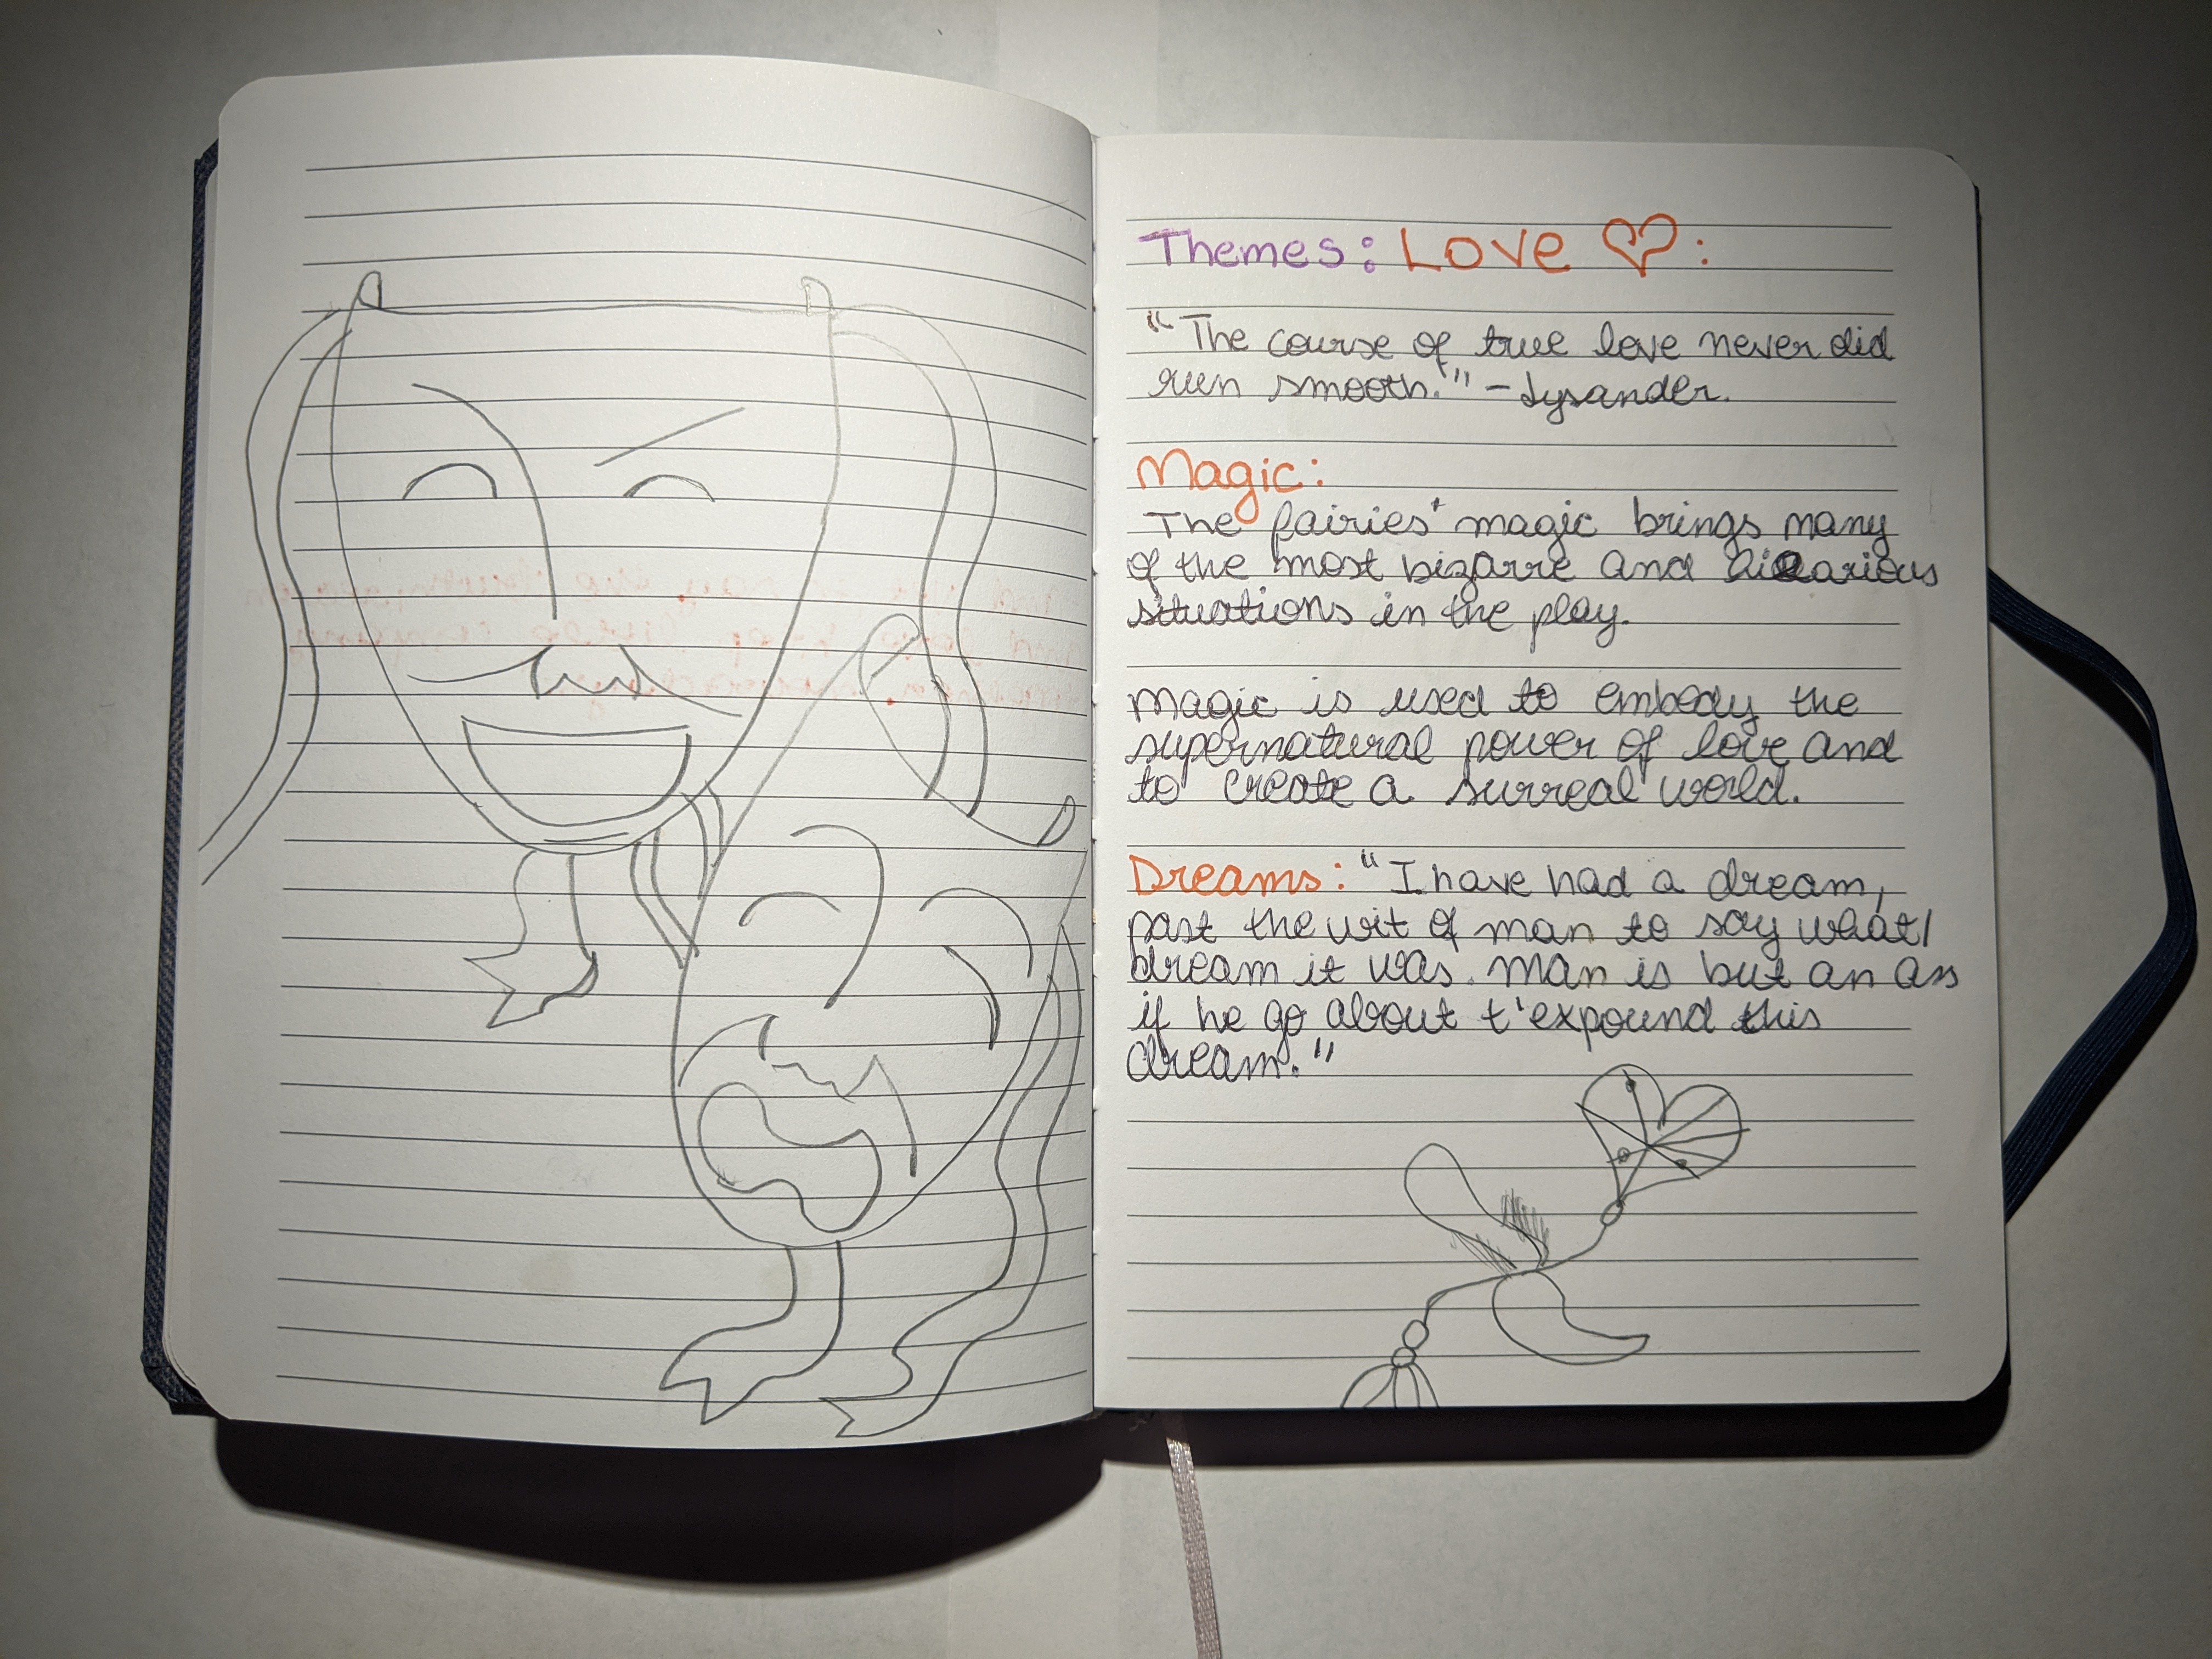 Themes: Love ♡:
"The course of true love never did
run smooth." - Lysander.
Magic:
The fairies' magic brings many
of the most bizarre and hilarious
situations in the play.
Magic is used to embody the
supernatural power of love and
to create a surreal world.
Dreams: "I have had a dream,
past the wit of man to say what
dream it was. Man is but an ass
if he go about t'expound this
dream."